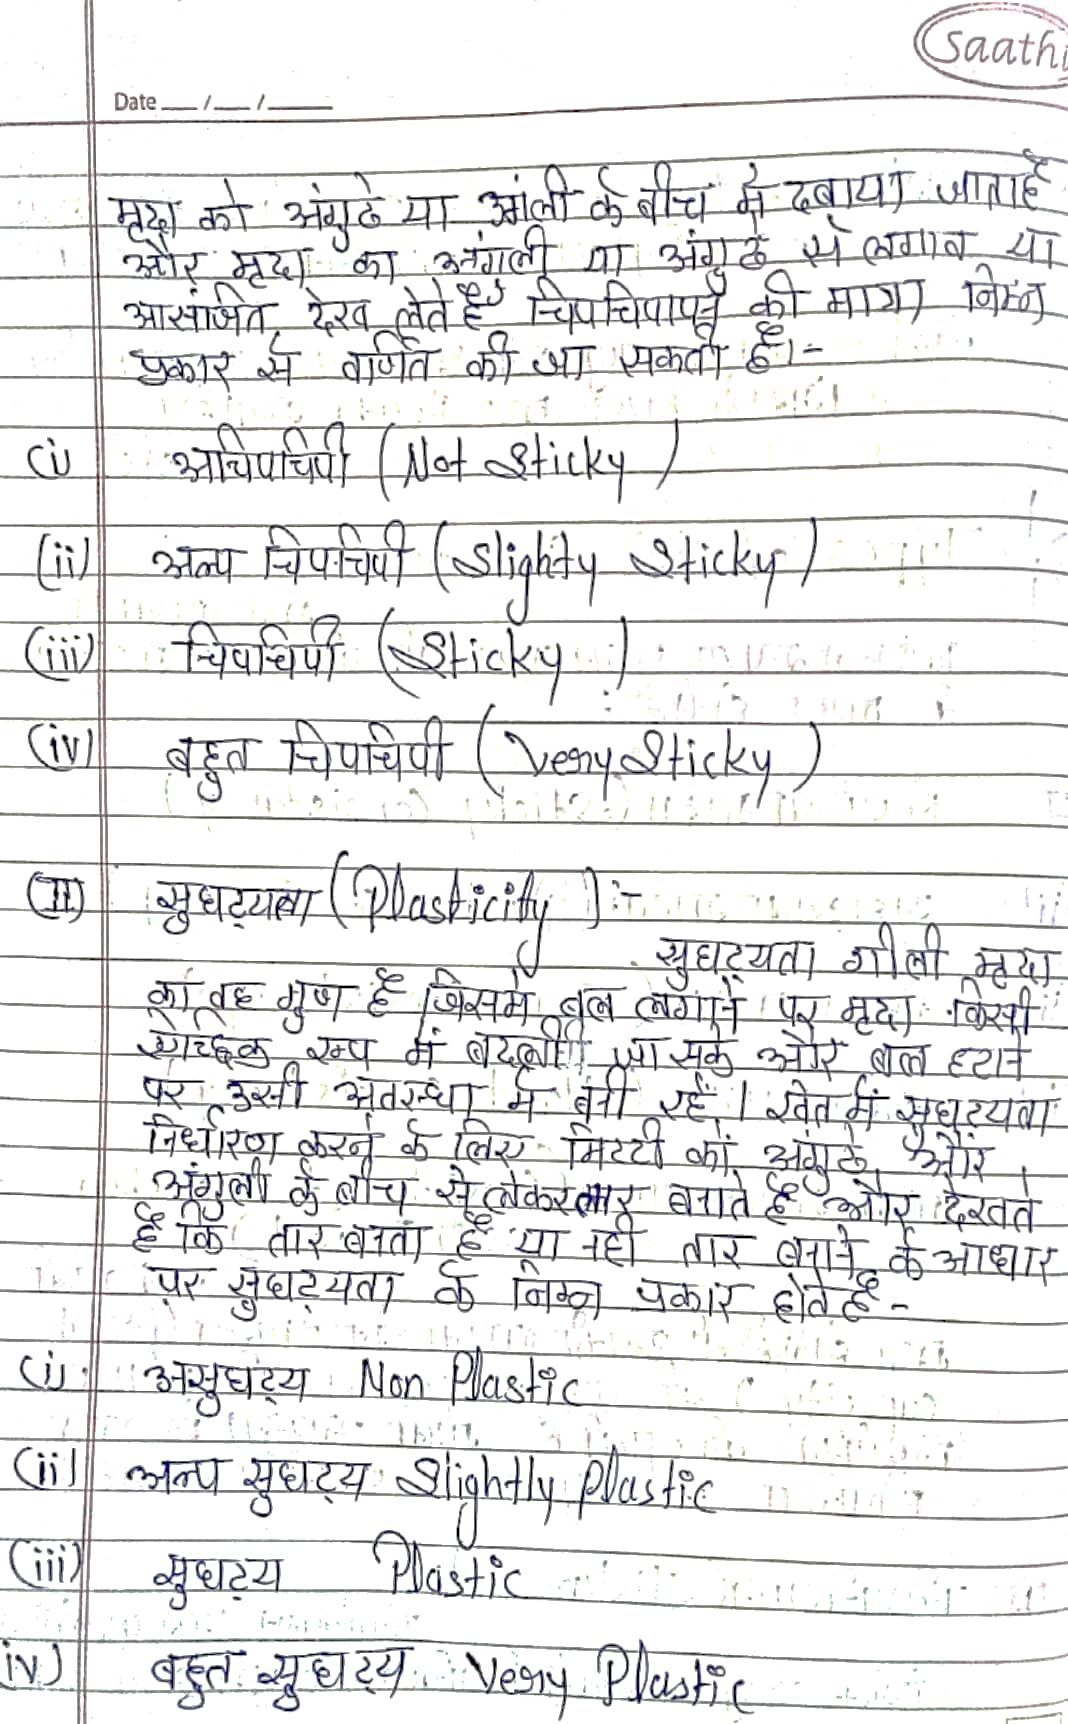 Saathi
Date __/__/____
मृदा को अंगुठे या अंगुली के बीच में दबाया जाता है
और मृदा का अंगुली या अंगुठे से लगाव या
आसंजित देख लेते है चिपचिपापन की मात्रा निम्न
प्रकार से वर्णित की जा सकती है।-
(i) अचिपचिपी (Not Sticky)
(ii) अल्प चिपचिपी (Slighty Sticky)
(iii) चिपचिपी (Sticky)
(iv) बहुत चिपचिपी (Very Sticky)
(II) सुघट्यता (Plasticity) :-
सुघट्यता गीली मृदा
का वह गुण है जिसमें बल लगाने पर मृदा किसी
रूप में बदली जा सके और बल हटाने
पर उसी अवस्था में बनी रहें। खेत में सुघट्यता
निर्धारण करने के लिए मिट्टी को अंगुठे और
अंगुली के बीच से लेकर तार बनाते है और देखते
है कि तार बनता है या नही तार बनाने के आधार
पर सुघट्यता के निम्न प्रकार होते है -
(i) असुघट्य Non Plastic
(ii) अल्प सुघट्य Slightly Plastic
(iii) सुघट्य Plastic
iv) बहुत सुघट्य Very Plastic